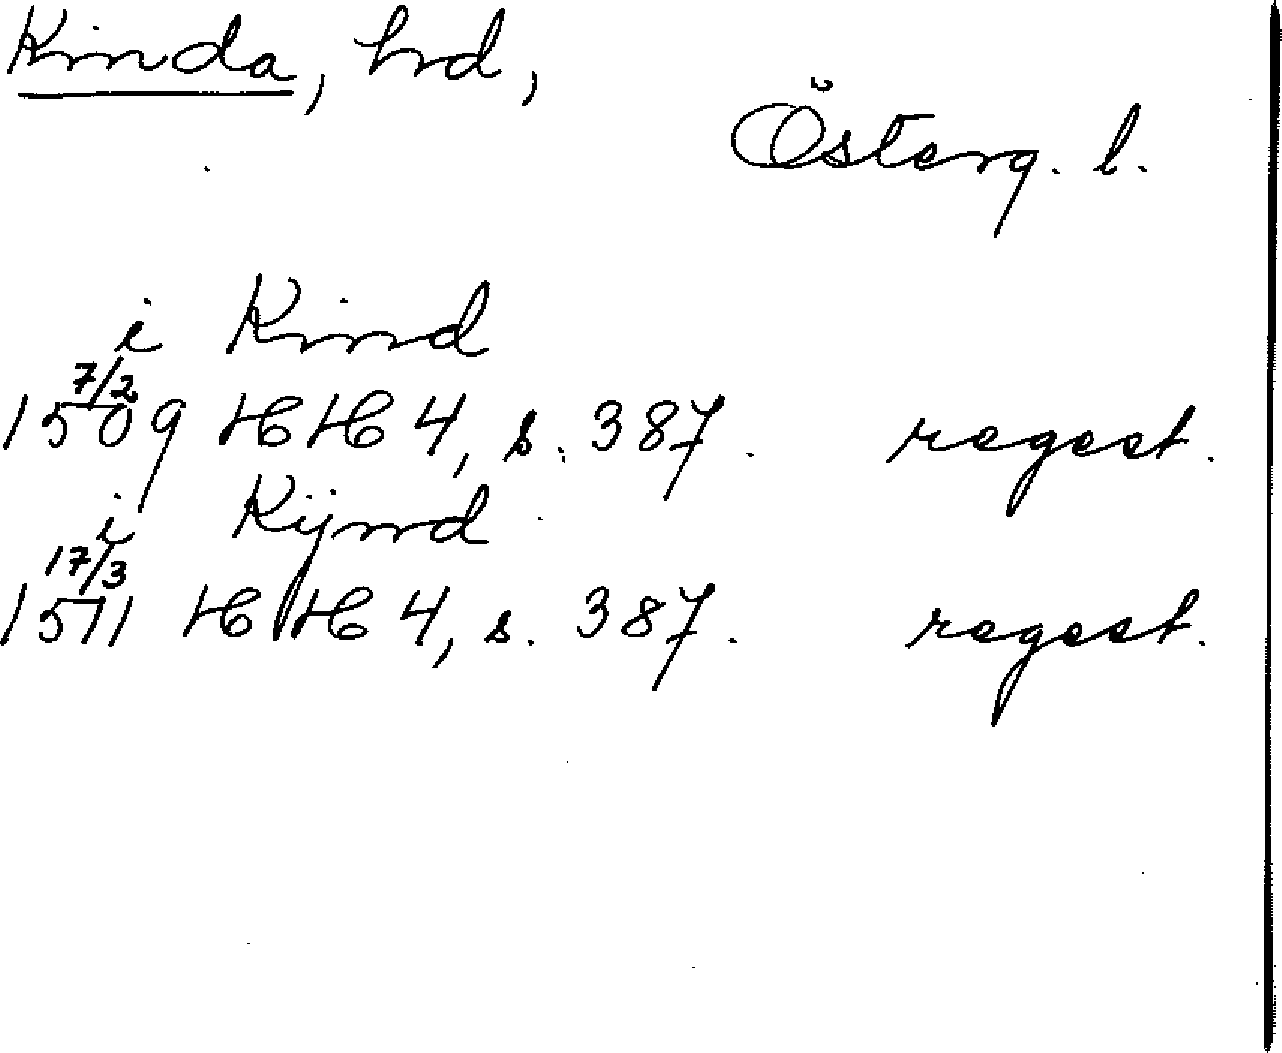 Kinda, hrd,
Österg. l.
i Kind
7/2
1509 HH 4, s. 387. regest.
i Kijnd
17/3
1511 HH 4, s. 387. regest.